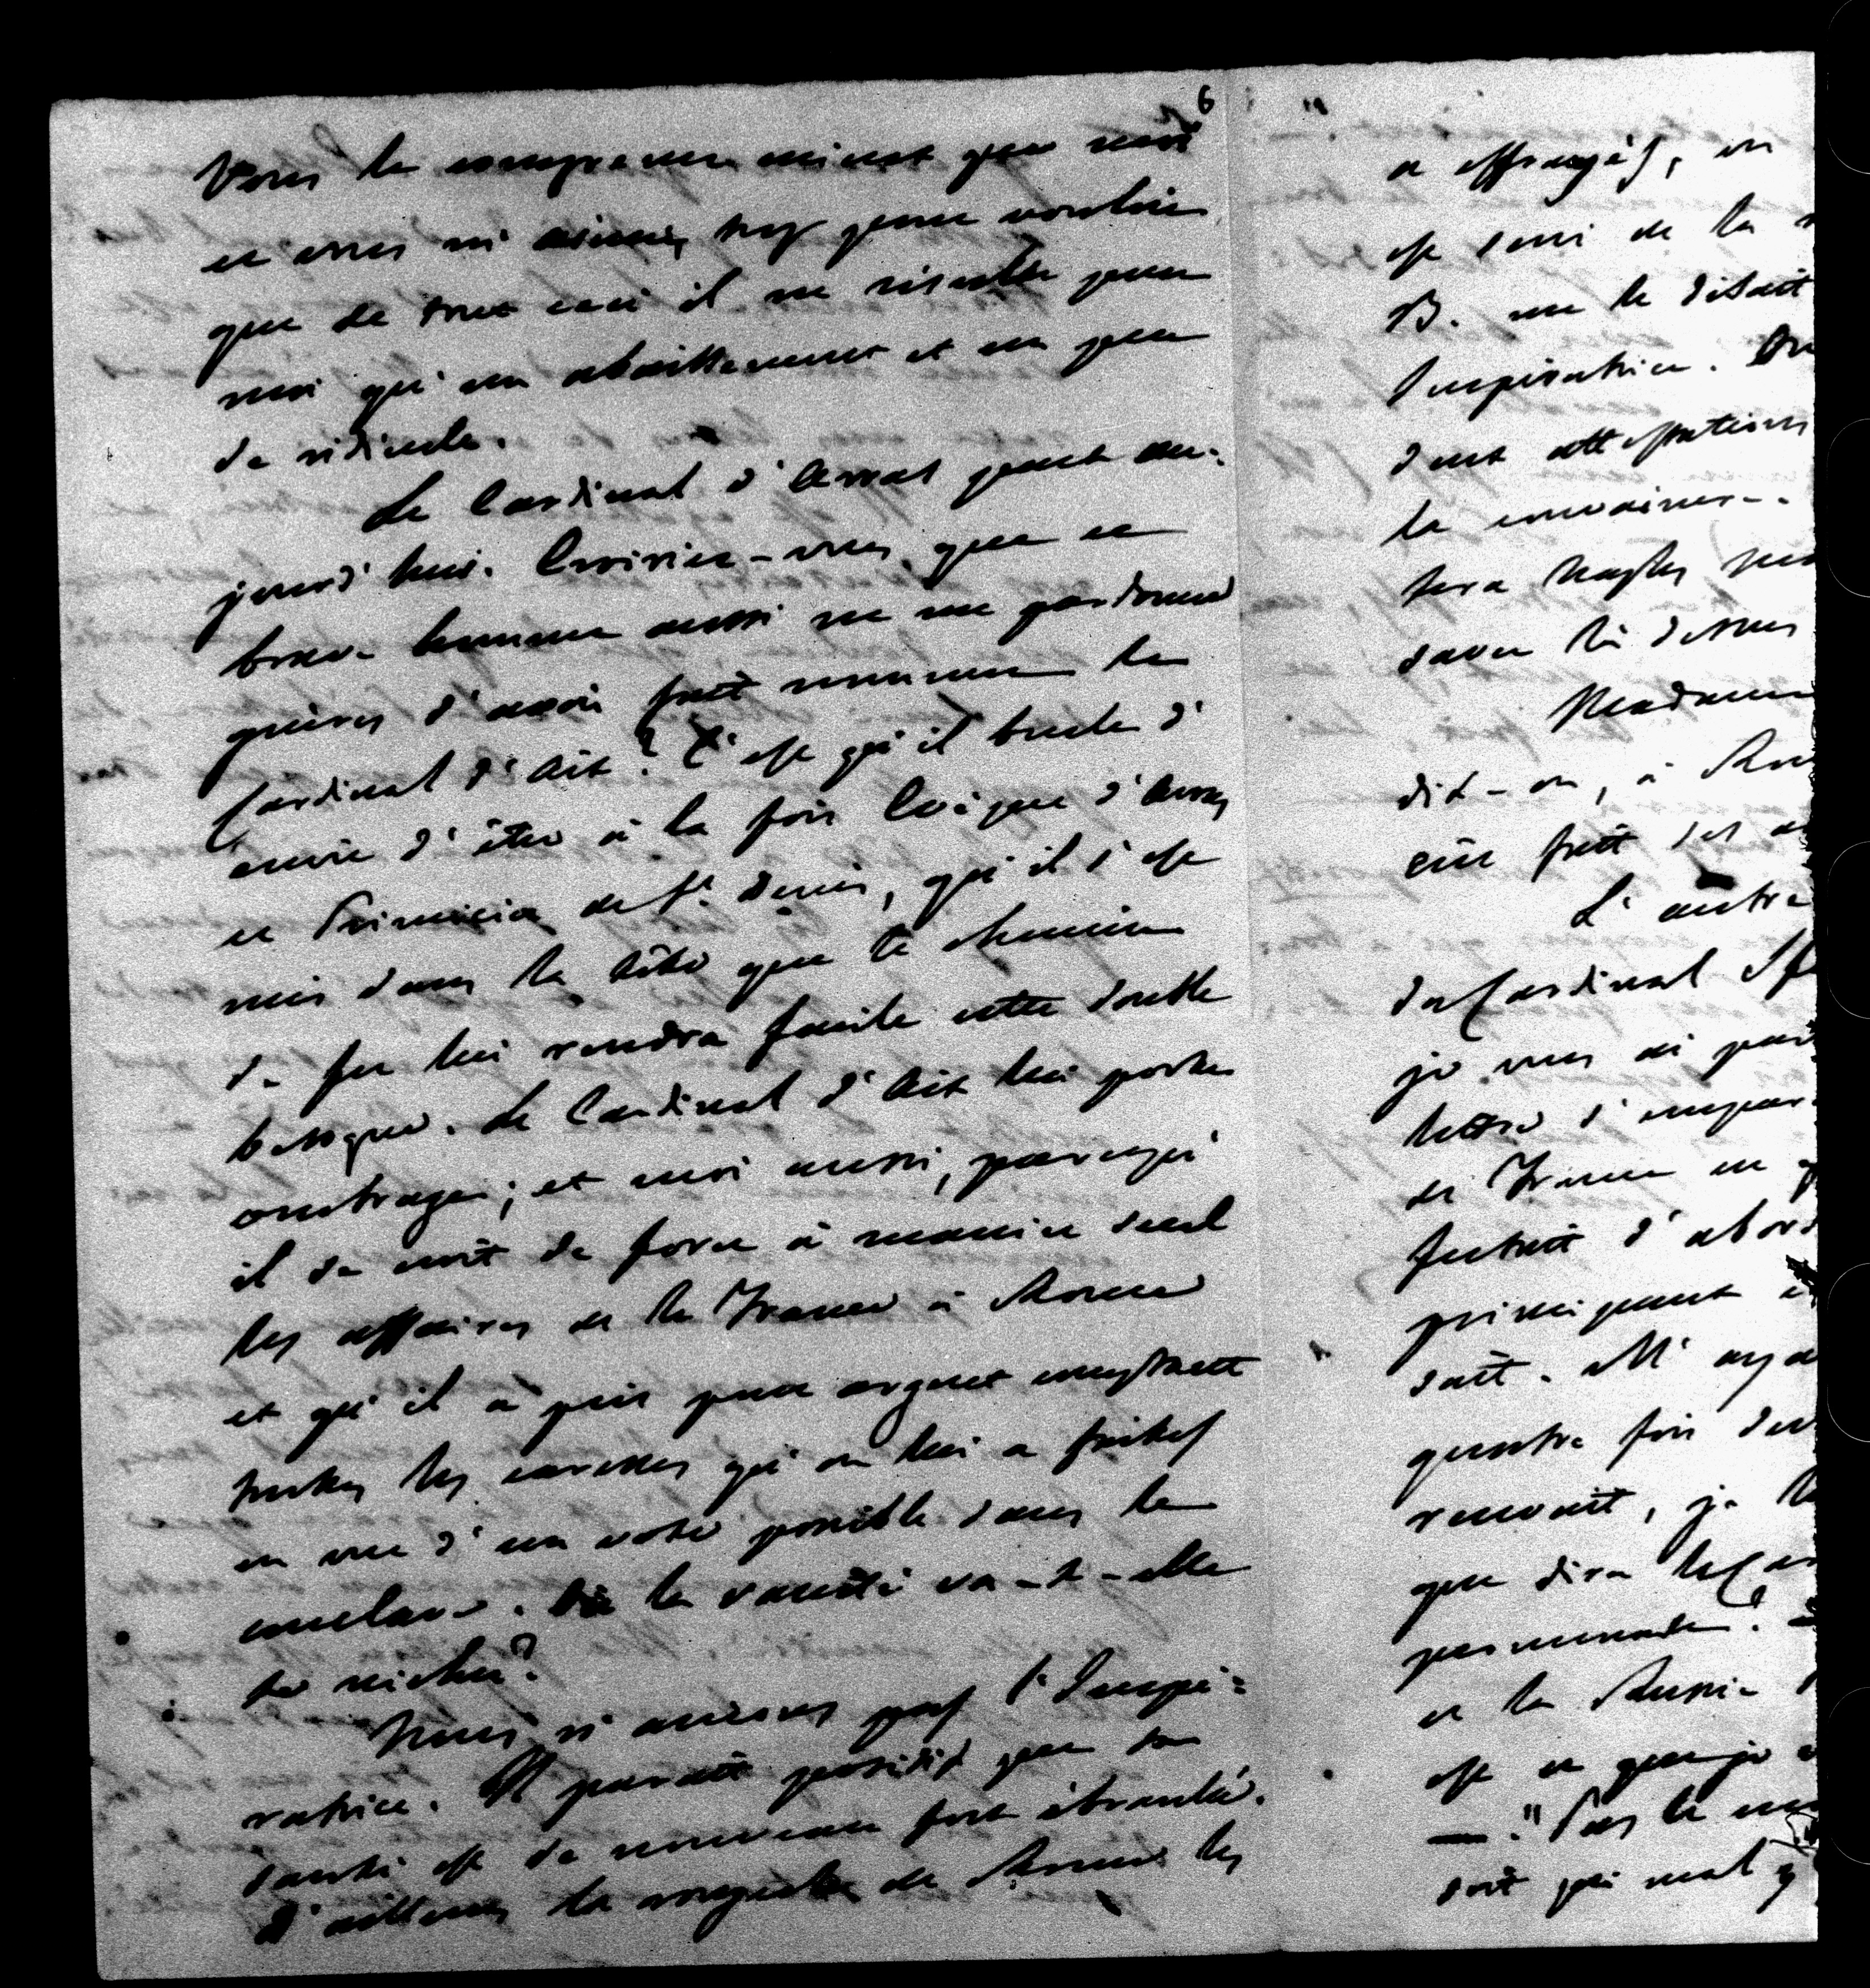 6
Vous le comprenez mieux que moi
et vous m'aimez trop pour vouloir
que de tout ceci il ne résulte pour
moi qu'un abaissement et un peu
de ridicule.
Le Cardinal d'Arras part au-
jourd'hui. Croiriez-vous que ce
brave homme aussi ne me pardonne
guères d'avoir fait nommer le
Cardinal d'Aix? C'est qu'il brule d'
envie d'être à la fois Evêque d'Arras
et Primicier de St. Denis, qu'il s'est
mis dans la tête que le chemin
de fer lui rendra facile cette double
besogne. Le Cardinal d'Aix lui porte
ombrage; et moi aussi, parcequ'
il se croit de force à manier seul
les affaires de la France à Rome
et qu'il a pris pour argent comptant
toutes les caresses qu'on lui a faites
en vue d'un vote possible dans le
conclave. Où la vanité va-t-elle
se nicher?
Nous n'aurons pas l'Impé-
ratrice. Il paraît positif que sa
santé est de nouveau fort ébranlée.
D'ailleurs la de Rome les
a effrayés, on
est saisi de la
B. me le disait
Impératrice.
dont attestations
la convaincre
fera
savoir là dessus
Madame
dit-on, à Rome
eût fait ses
L'autre
du Cardinal
je vous ai
lettre s'
de France en
feutait d'abord
principaux
sait. M'aya
quatre fois
revenait, je
que dira le Car
promenade?
et la Russie
est ce que je
— "Pas le
soit qui mal y